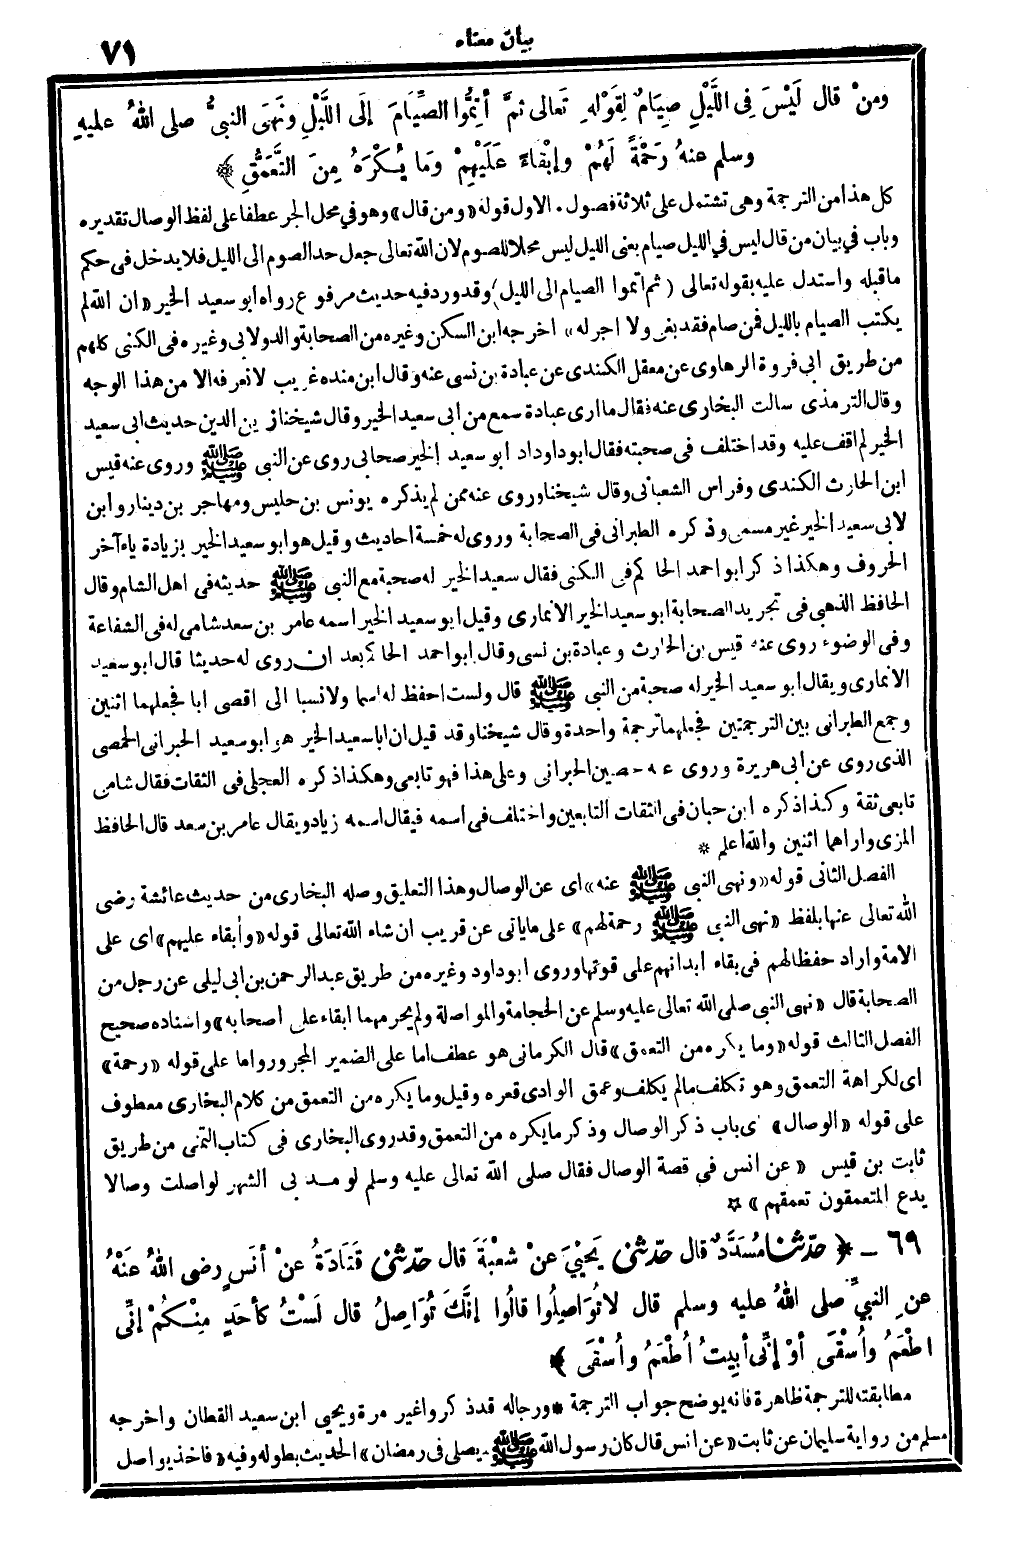 ٧١
بيان معناه
ومنْ قال لَيْسَ فِى اللَّيْلِ صِيَامٌ لِقَوْلِهِ تَعالى ثمَّ أتِمُّوا الصِّيَامَ إلَى اللَّيْلِ ونَهَى النبىُّ صلى اللهُ عليهِ
وسلم عنهُ رَحْمَةً لَهُمْ وإبْقاءً عَلَيْهِمْ وَما يُكْرَهُ مِنَ التَّعَمُّقِ ﴾
كل هذا من الترجمة وهى تشتمل على ثلاثة فصول . الاول قوله «ومن قال» وهو في محل الجر عطفا على لفظ الوصال تقديره
وباب في بيان من قال ليس في الليل صيام يعنى الليل ليس محلا للصوم لان الله تعالى جعل حد الصوم الى الليل فلا يدخل فى حكم
ما قبله واستدل عليه بقوله تعالى ( ثم أتموا الصيام الى الليل ) وقد ورد فيه حديث مرفوع رواه ابو سعيد الخير «ان الله لم
يكتب الصيام بالليل فمن صام فقد بغى ولا اجر له» اخرجه ابن السكن وغيره من الصحابة والدولابى وغيره فى الكنى كلهم
من طريق ابى فروة الرهاوى عن معقل الكندى عن عبادة بن نسى عنه وقال ابن منده غريب لا نعرفه الا من هذا الوجه
وقال الترمذى سالت البخارى عنه فقال ما ارى عبادة سمع من ابى سعيد الخير وقال شيخنا زين الدين حديث ابى سعيد
الخير لم اقف عليه وقد اختلف فى صحبته فقال ابو داود ابو سعيد الخير صحابى روى عن النبى ﷺ وروى عنه قيس
ابن الحارث الكندى وفراس الشعبانى وقال شيخنا وروى عنه ممن لم يذكره يونس بن حليس ومهاجر بن دينار وابن
لابى سعيد الخير غير مسمى وذكره الطبرانى فى الصحابة وروى له خمسة احاديث وقيل هو ابو سعيد الخير بزيادة ياء آخر
الحروف وهكذا ذكر ابو احمد الحاكم فى الكنى فقال سعيد الخير له صحبة مع النبى ﷺ حديثه فى اهل الشام وقال
الحافظ الذهبى فى تجريد الصحابة ابو سعيد الخير الانمارى وقيل ابو سعيد الخير اسمه عامر بن سعد شامى له فى الشفاعة
وفى الوضوء روى عنه قيس بن الحارث وعبادة بن نسى وقال ابو احمد الحاكم بعد ان روى له حديثا قال ابو سعيد
الانمارى ويقال ابو سعيد الخير له صحبة من النبى ﷺ قال ولست احفظ له اسما ولا نسبا الى اقصى ابا فجعلهما اثنين
وجمع الطبرانى بين الترجمتين فجعلهما ترجمة واحدة وقال شيخنا وقد قيل ان ابا سعيد الخير هو ابو سعيد الحبرانى الحمصى
الذى روى عن ابى هريرة وروى عنه حصين الحبرانى وعلى هذا فهو تابعى وهكذا ذكره العجلى فى الثقات فقال شامى
تابعى ثقة وكذا ذكره ابن حبان فى الثقات التابعين واختلف فى اسمه فيقال اسمه زياد ويقال عامر بن سعد قال الحافظ
المزى واراهما اثنين والله اعلم *
الفصل الثانى قوله «ونهى النبى ﷺ عنه» اى عن الوصال وهذا التعليق وصله البخارى من حديث عائشة رضى
الله تعالى عنها بلفظ «نهى النبى ﷺ رحمة لهم» على ما ياتى عن قريب ان شاء الله تعالى قوله «وأبقاء عليهم» اى على
الامة واراد حفظا لهم فى بقاء ابدانهم على قوتها وروى ابو داود وغيره من طريق عبد الرحمن بن ابى ليلى عن رجل من
الصحابة قال «نهى النبى صلى الله تعالى عليه وسلم عن الحجامة والمواصلة ولم يحرمهما ابقاء على اصحابه» واسناده صحيح
الفصل الثالث قوله «وما يكره من التعمق» قال الكرمانى هو عطف اما على الضمير المجرور واما على قوله «رحمة»
اى لكراهة التعمق وهو تكلف مالم يكلف وعمق الوادى قعره وقيل وما يكره من التعمق من كلام البخارى معطوف
على قوله «الوصال» اى باب ذكر الوصال وذكر ما يكره من التعمق وقد روى البخارى فى كتاب التمنى من طريق
ثابت بن قيس «عن انس في قصة الوصال فقال صلى الله تعالى عليه وسلم لو مد بى الشهر لواصلت وصالا
يدع المتعمقون تعمقهم» ☆
٦٩ ــ ﴿ حدّثنا مُسَدَّدٌ قال حدّثنى يَحْيَى عنْ شعْبَةَ قال حدّثنى قَتَادَةُ عنْ أنَسٍ رضى اللهُ عنْهُ
عنِ النبىِّ صلى اللهُ عليه وسلم قال لا تُوَاصِلُوا قالُوا إنَّكَ تُوَاصِلُ قال لَسْتُ كأحَدٍ مِنْكُمْ إنِّى
اطْعَمُ واُسْقَى أوْ إنِّى أبِيتُ اُطْعَمُ واُسْقَى ﴾
مطابقته للترجمة ظاهرة فانه يوضح جواب الترجمة * ورجاله قد ذكروا غير مرة ويحيى ابن سعيد القطان واخرجه
مسلم من رواية سليمان عن ثابت «عن انس قال كان رسول الله ﷺ يصلى فى رمضان» الحديث بطوله وفيه «فاخذ يواصل